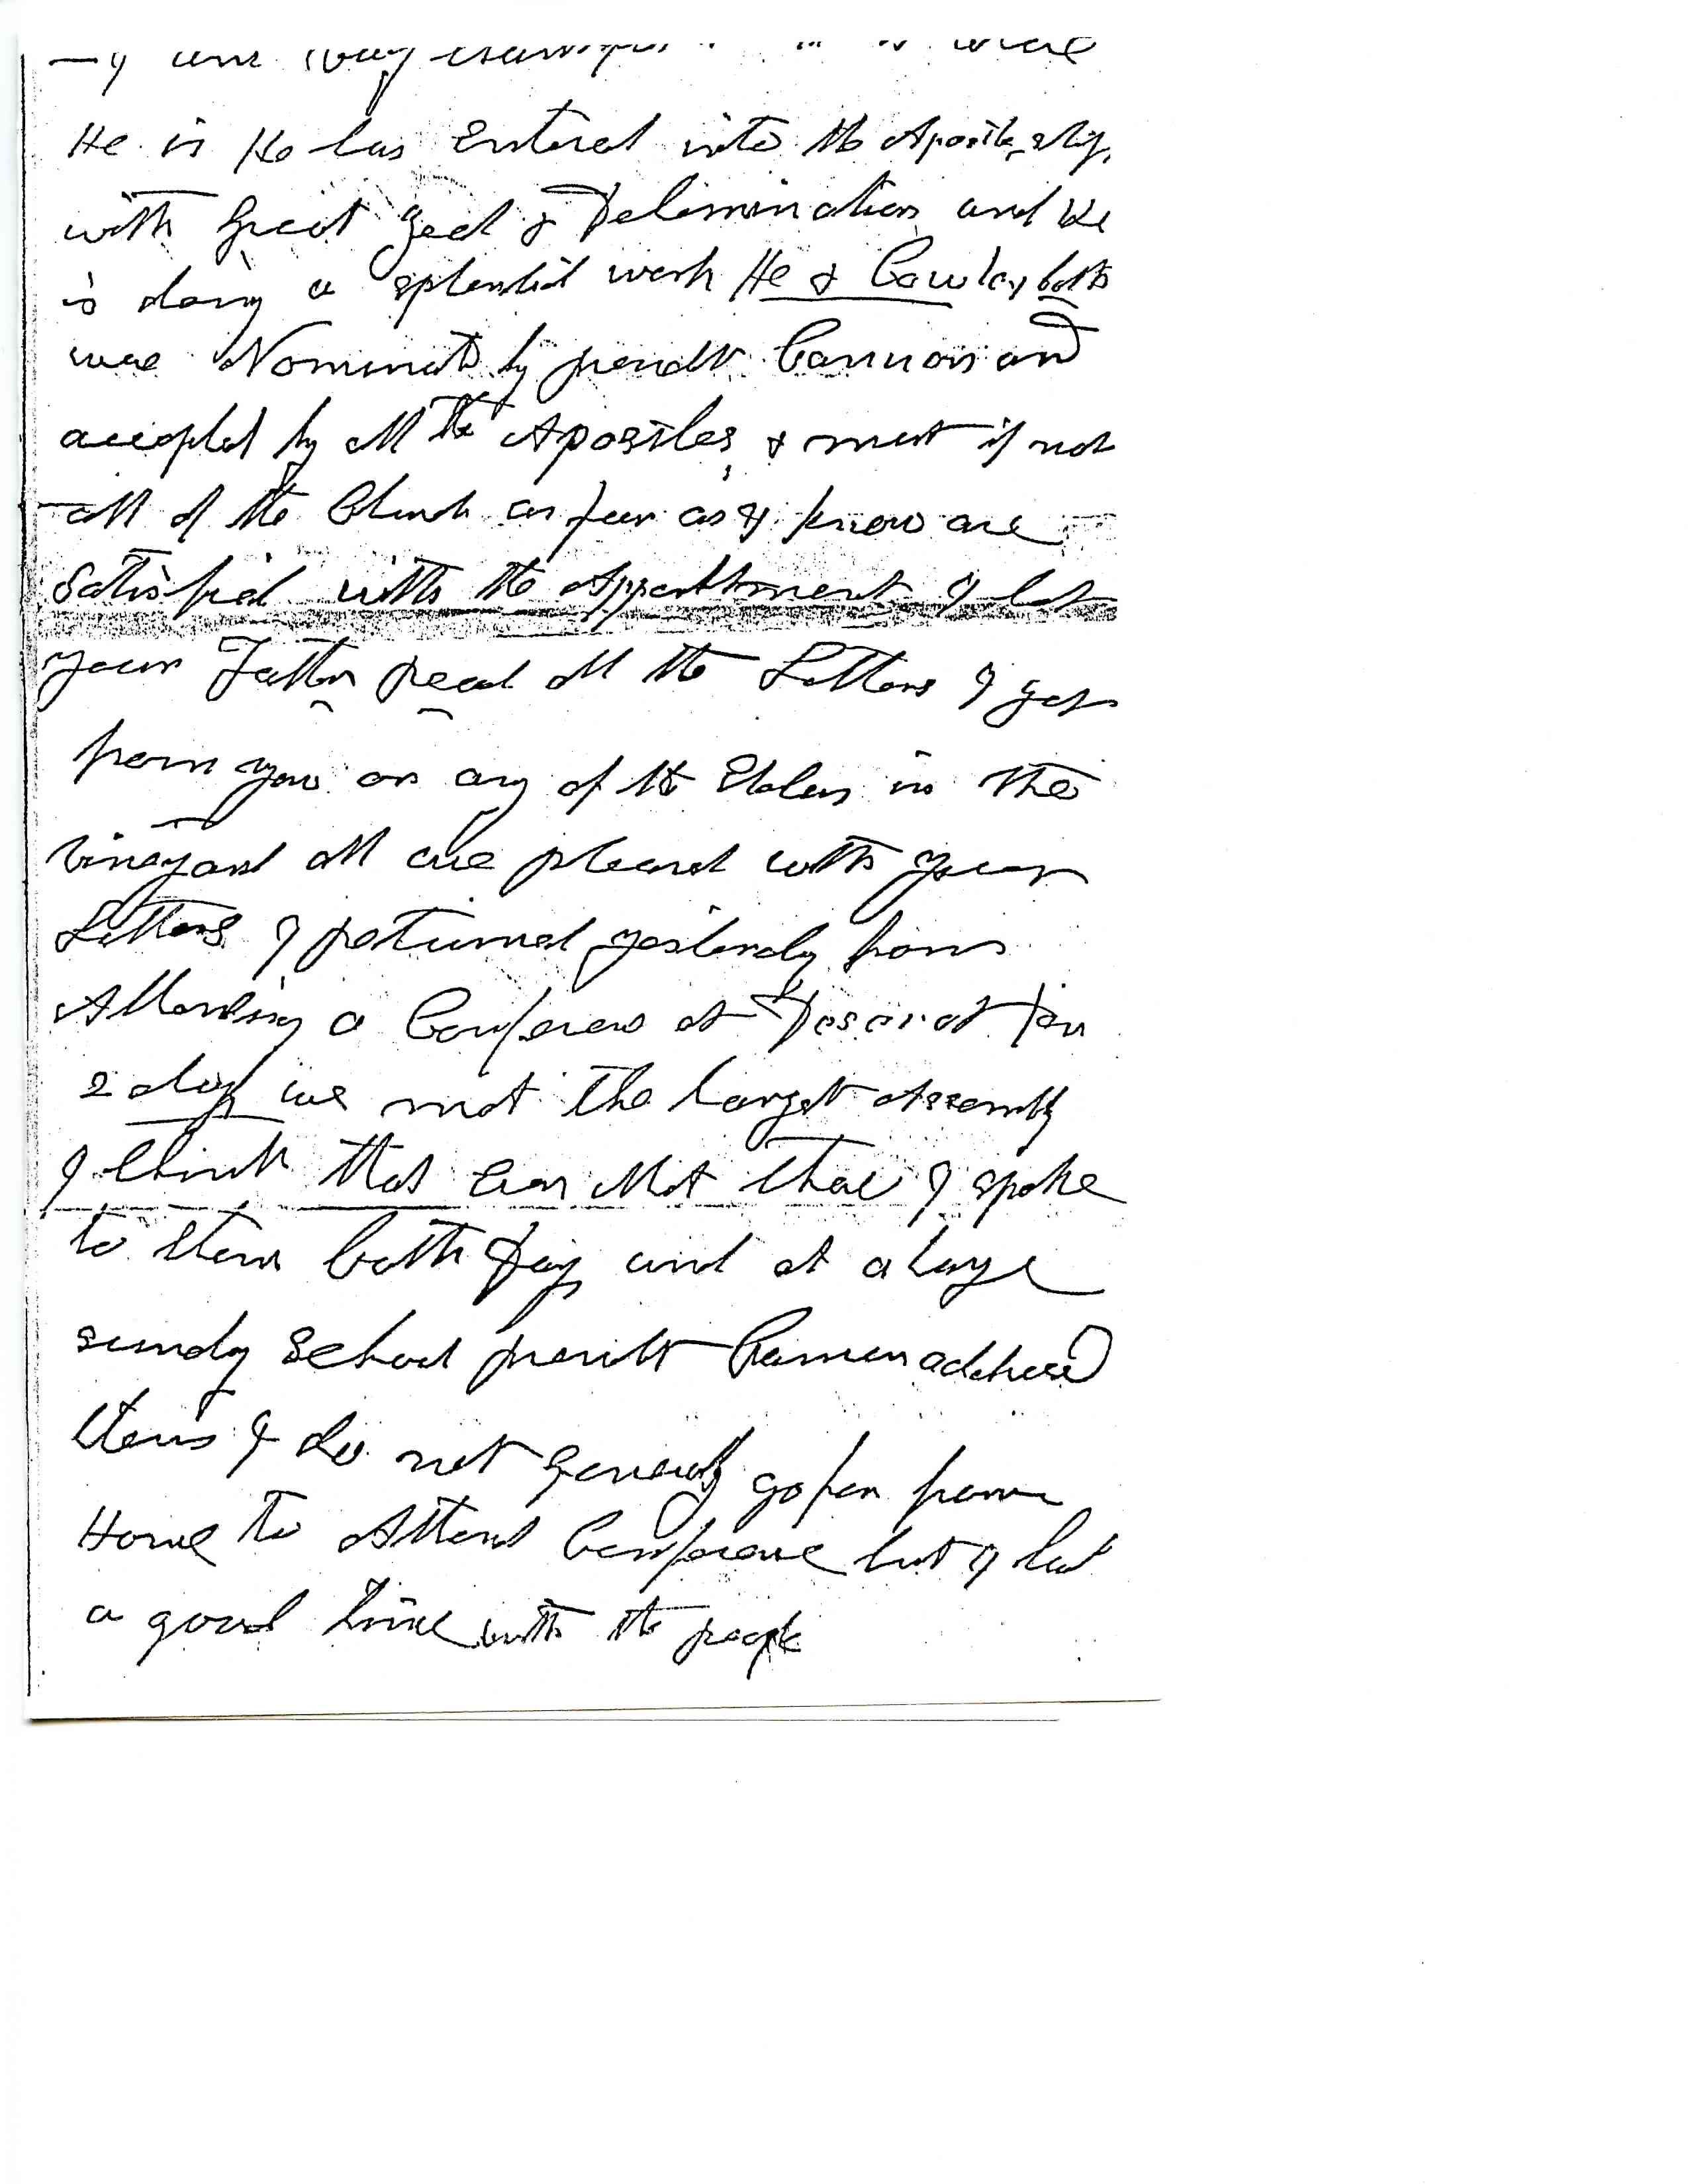 He is He has Entered into the Apostleship
with Great Zeal & Determination and He
is doing a splendid work He & Cowley both
were Nominated by presidt Cannon and
accepted by all the Apostles & most if not
all of the Church as far as I know are
satisfied with the Appointment I let
your Father read all the Letters I get
from you or any of the Elders in the
vineyard all are pleased with your
Letters I returned yesterday from
Attending a Conference at Deseret for
2 days we met the largest Assembly
I think that Ever Met there I spoke
to them both Days and at a large
sunday School presidt Cannon addressed
them I do not generally go far from
Home to Attend Conference but I had
a good time with the people